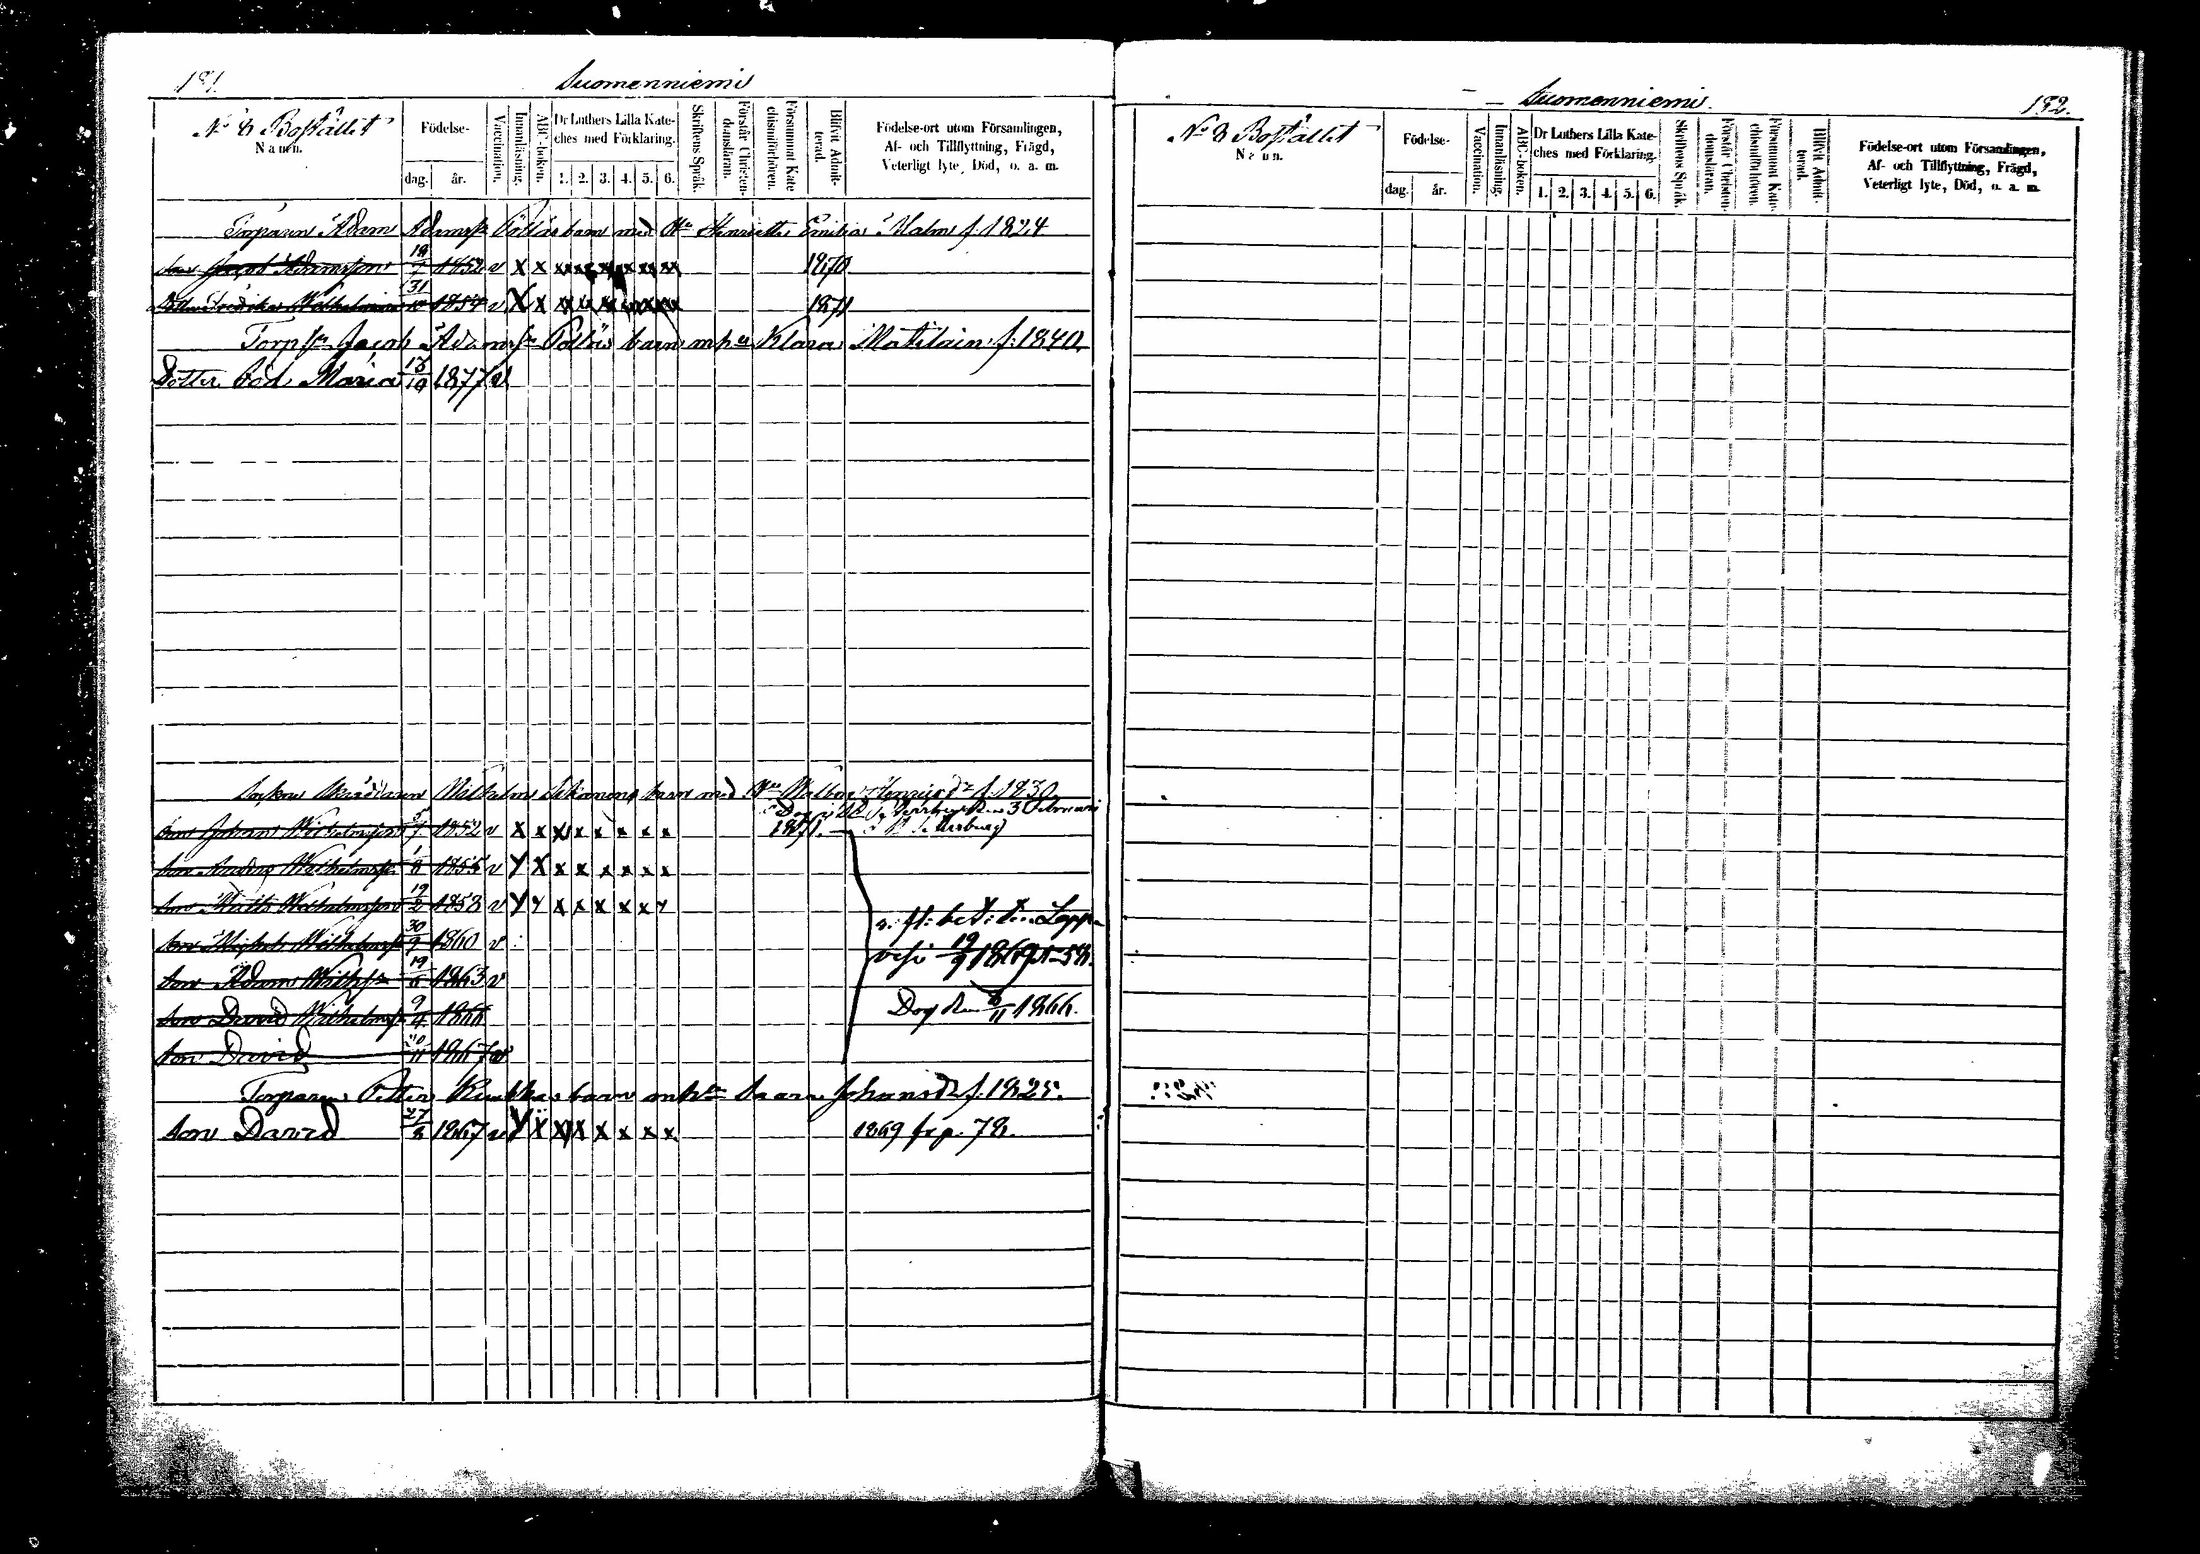 181.
Suomenniemi
No 8 Boställit
Namn.
Födelse-
dag. år.
Vaccination.
Innanläsning.
ABC-boken.
Dr Luthers Lilla Kate-
ches med Förklaring.
1. 2. 3. 4. 5. 6.
Skriftens Språk.
Förstår Christen-
domsläran.
Försummat Kate-
chismiförhören.
Blifvit Admit-
terad.
Födelse-ort utom Församlingen,
Af- och Tillflyttning, Frägd,
Veterligt lyte, Död, o. a. m.
Torparen Adam Adamss: Pölläs barn med Hu Henrietta Emilia Malm f. 1824
Son Jacob Adamsson 18/7 1852 v x x xx xx xx xx xx xx 1870
Dottren Fredrika Wilhelmina 31/10 1854 v x x xx xx xx xx xx xx 1871
Torp sn Jacob Adamss: Pöllös barn m hu Klara Matilain: f: 1840.
Dotter Eva Maria 13/10 1877 v
Wilhelm barn med Hu Walbor Henriksdr f. 1830
Son Johan Wilhelmsson 5/7 1852 v x x x x x x x x 1871. 3 Februari
i St Petersburg
Son Anders Wilhelmss: 1/8 1855 v x x x x x x x x
Son Matts Wilhelmsson 19/2 1858 v x x x x x x x x
Son Michel Wilhelmss: 30/9 1860 v
Son Adam Wilhss 19/6 1863 v
a: fl: bet: t: Lapp-
vesi 19/9 1869
Son David Wilhelmss: 9/4 1866 Dog den 8/11 1866.
Son David 20/11 1867 v
Torparen Petter Kuukkas barn m h:u Saara Johansdr f. 1825.
Son David 27/8 1867 v x x x x x x x x 1869 fr p. 78.
Suomenniemi.
182.
No 8 Boställit
Namn.
Födelse-
dag. år.
Vaccination.
Innanläsning.
ABC-boken.
Dr Luthers Lilla Kate-
ches med Förklaring.
1. 2. 3. 4. 5. 6.
Skriftens Språk.
Förstår Christen-
domsläran.
Försummat Kate-
chismiförhören.
Blifvit Admit-
terad.
Födelse-ort utom Församlingen,
Af- och Tillflyttning, Frägd,
Veterligt lyte, Död, o. a. m.